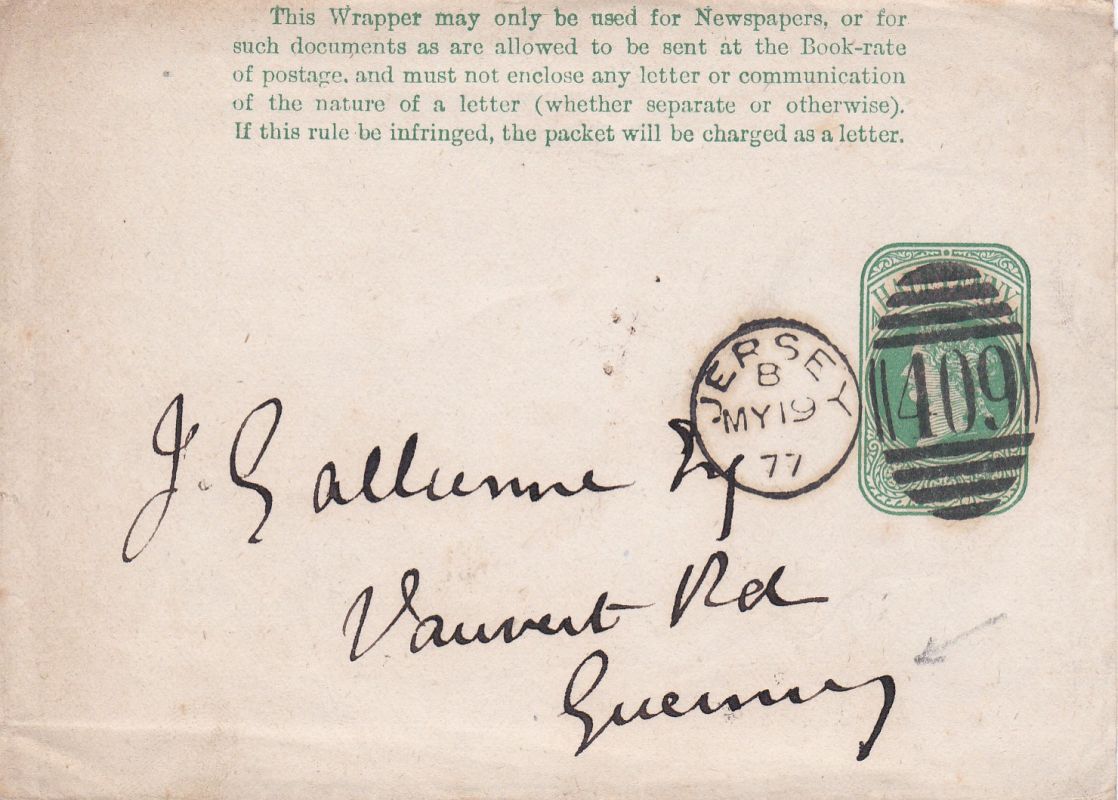 This Wrapper may only be used for Newspapers, or for
such documents as are allowed to be sent at the Book-rate
of postage, and must not enclose any letter or communication
of the nature of a letter (whether separate or otherwise).
If this rule be infringed, the packet will be charged as a letter.
HALFPENNY
JERSEY
B
MY 19
77
409
J. Gallienne Esq
Vauvert Rd
Guernsey